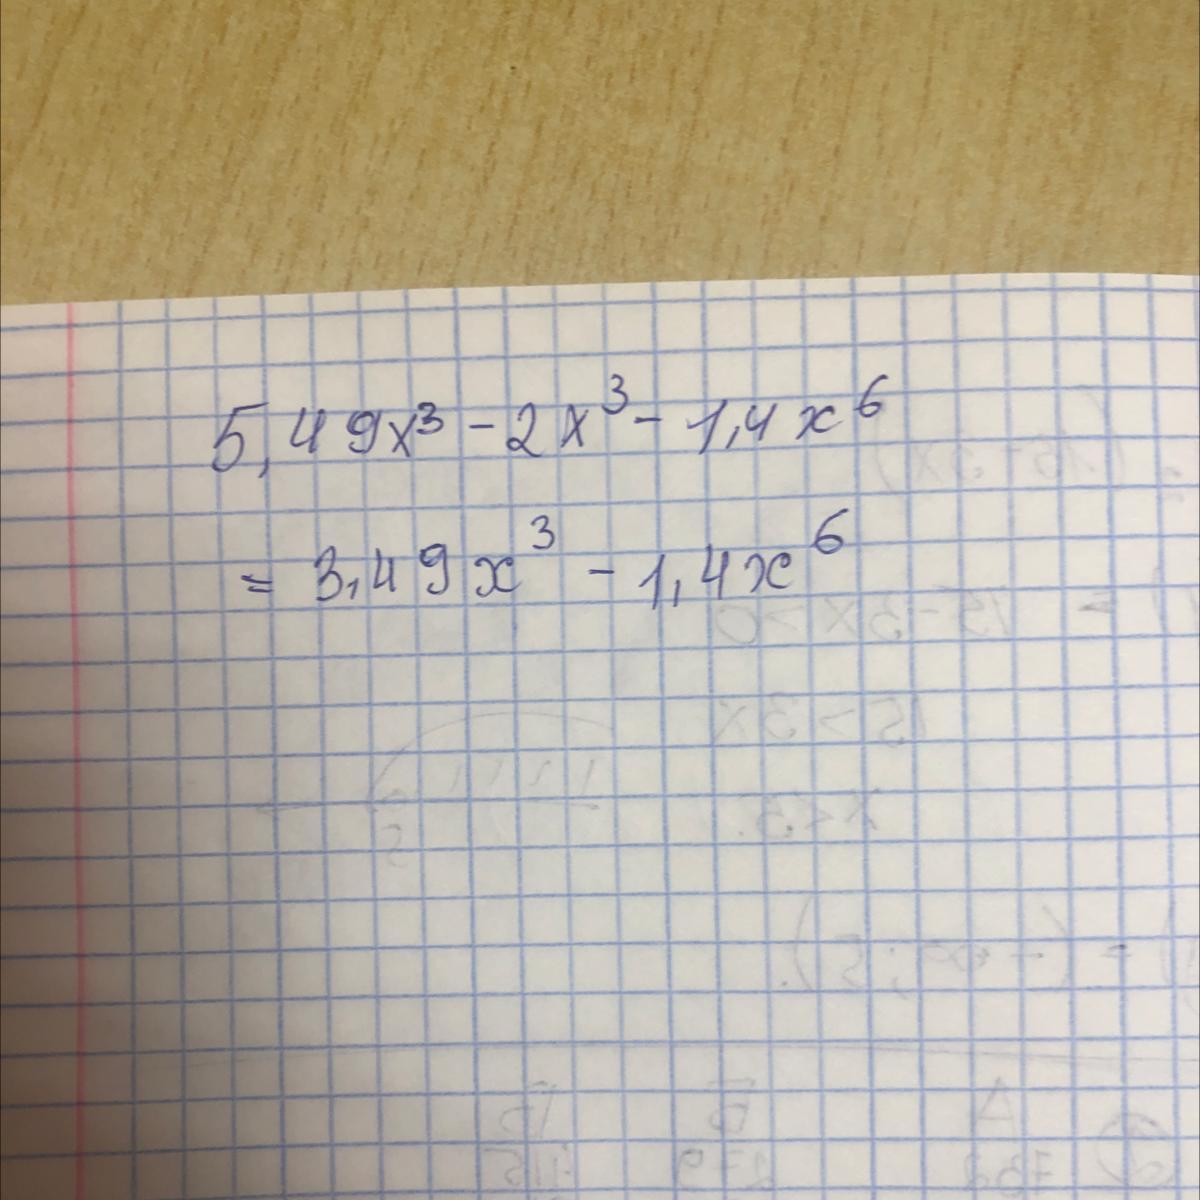 5,49x³ - 2x³ - 1,4x⁶
= 3,49x³ - 1,4x⁶